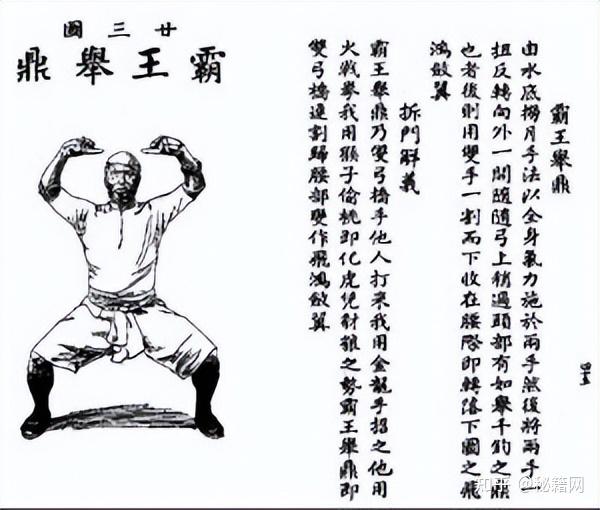 廿三圖
霸王舉鼎
霸王舉鼎
由水底撈月手法以全身氣力施於兩手然後將兩手一
扭反轉向外一開隨隨弓上稍過頭部有如舉千鈞之鼎
也者後則用雙手一割而下收在腰際即轉落下圖之飛
鴻斂翼
拆門解義
霸王舉鼎乃雙弓橋手他人打來我用金龍手招之他用
火戰拳我用猴子偷桃即化虎兕豺狼之勢霸王舉鼎即
雙弓橋連割歸腰部變作飛鴻斂翼
四五
知乎 @秘籍网